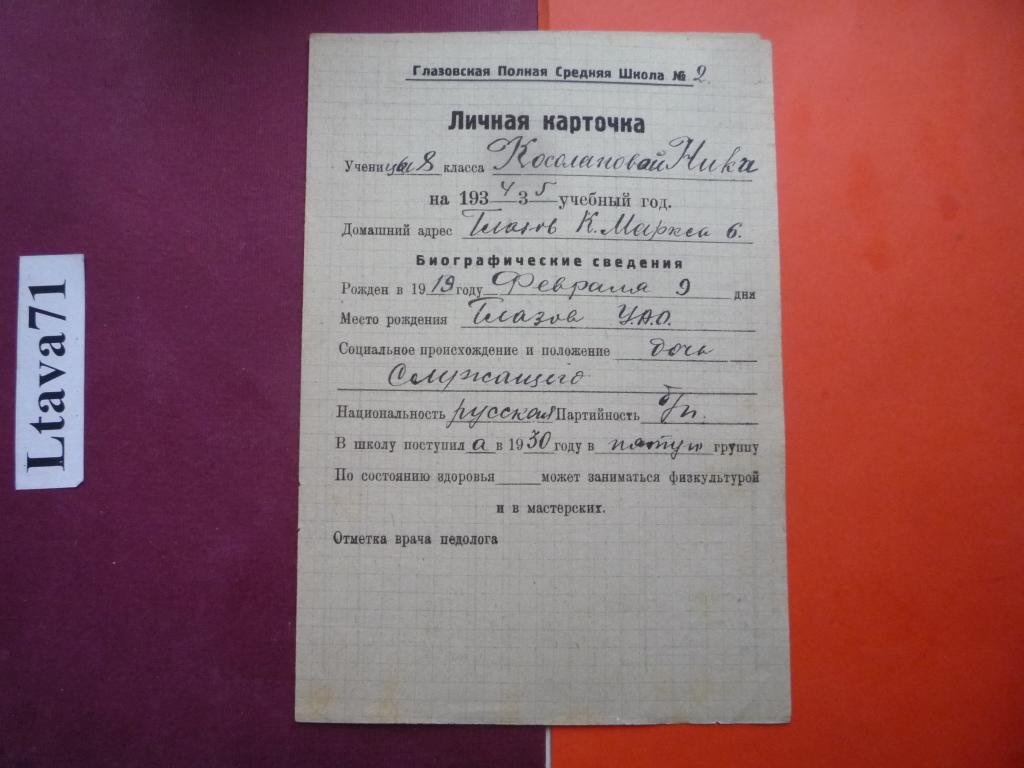 Ltava71
Глазовская Полная Средняя Школа № 2.
Личная карточка
Ученицы 8 класса Косолаповой Ники
на 1934 35 учебный год.
Домашний адрес Глазов К. Маркса 6.
Биографические сведения
Рожден в 1919 году Февраля 9 дня
Место рождения Глазов У.А.О.
Социальное происхождение и положение дочь
Служащего
Национальность русская Партийность б/п.
В школу поступил а в 1930 году в пятую группу
По состоянию здоровья может заниматься физкультурой
и в мастерских.
Отметка врача педолога